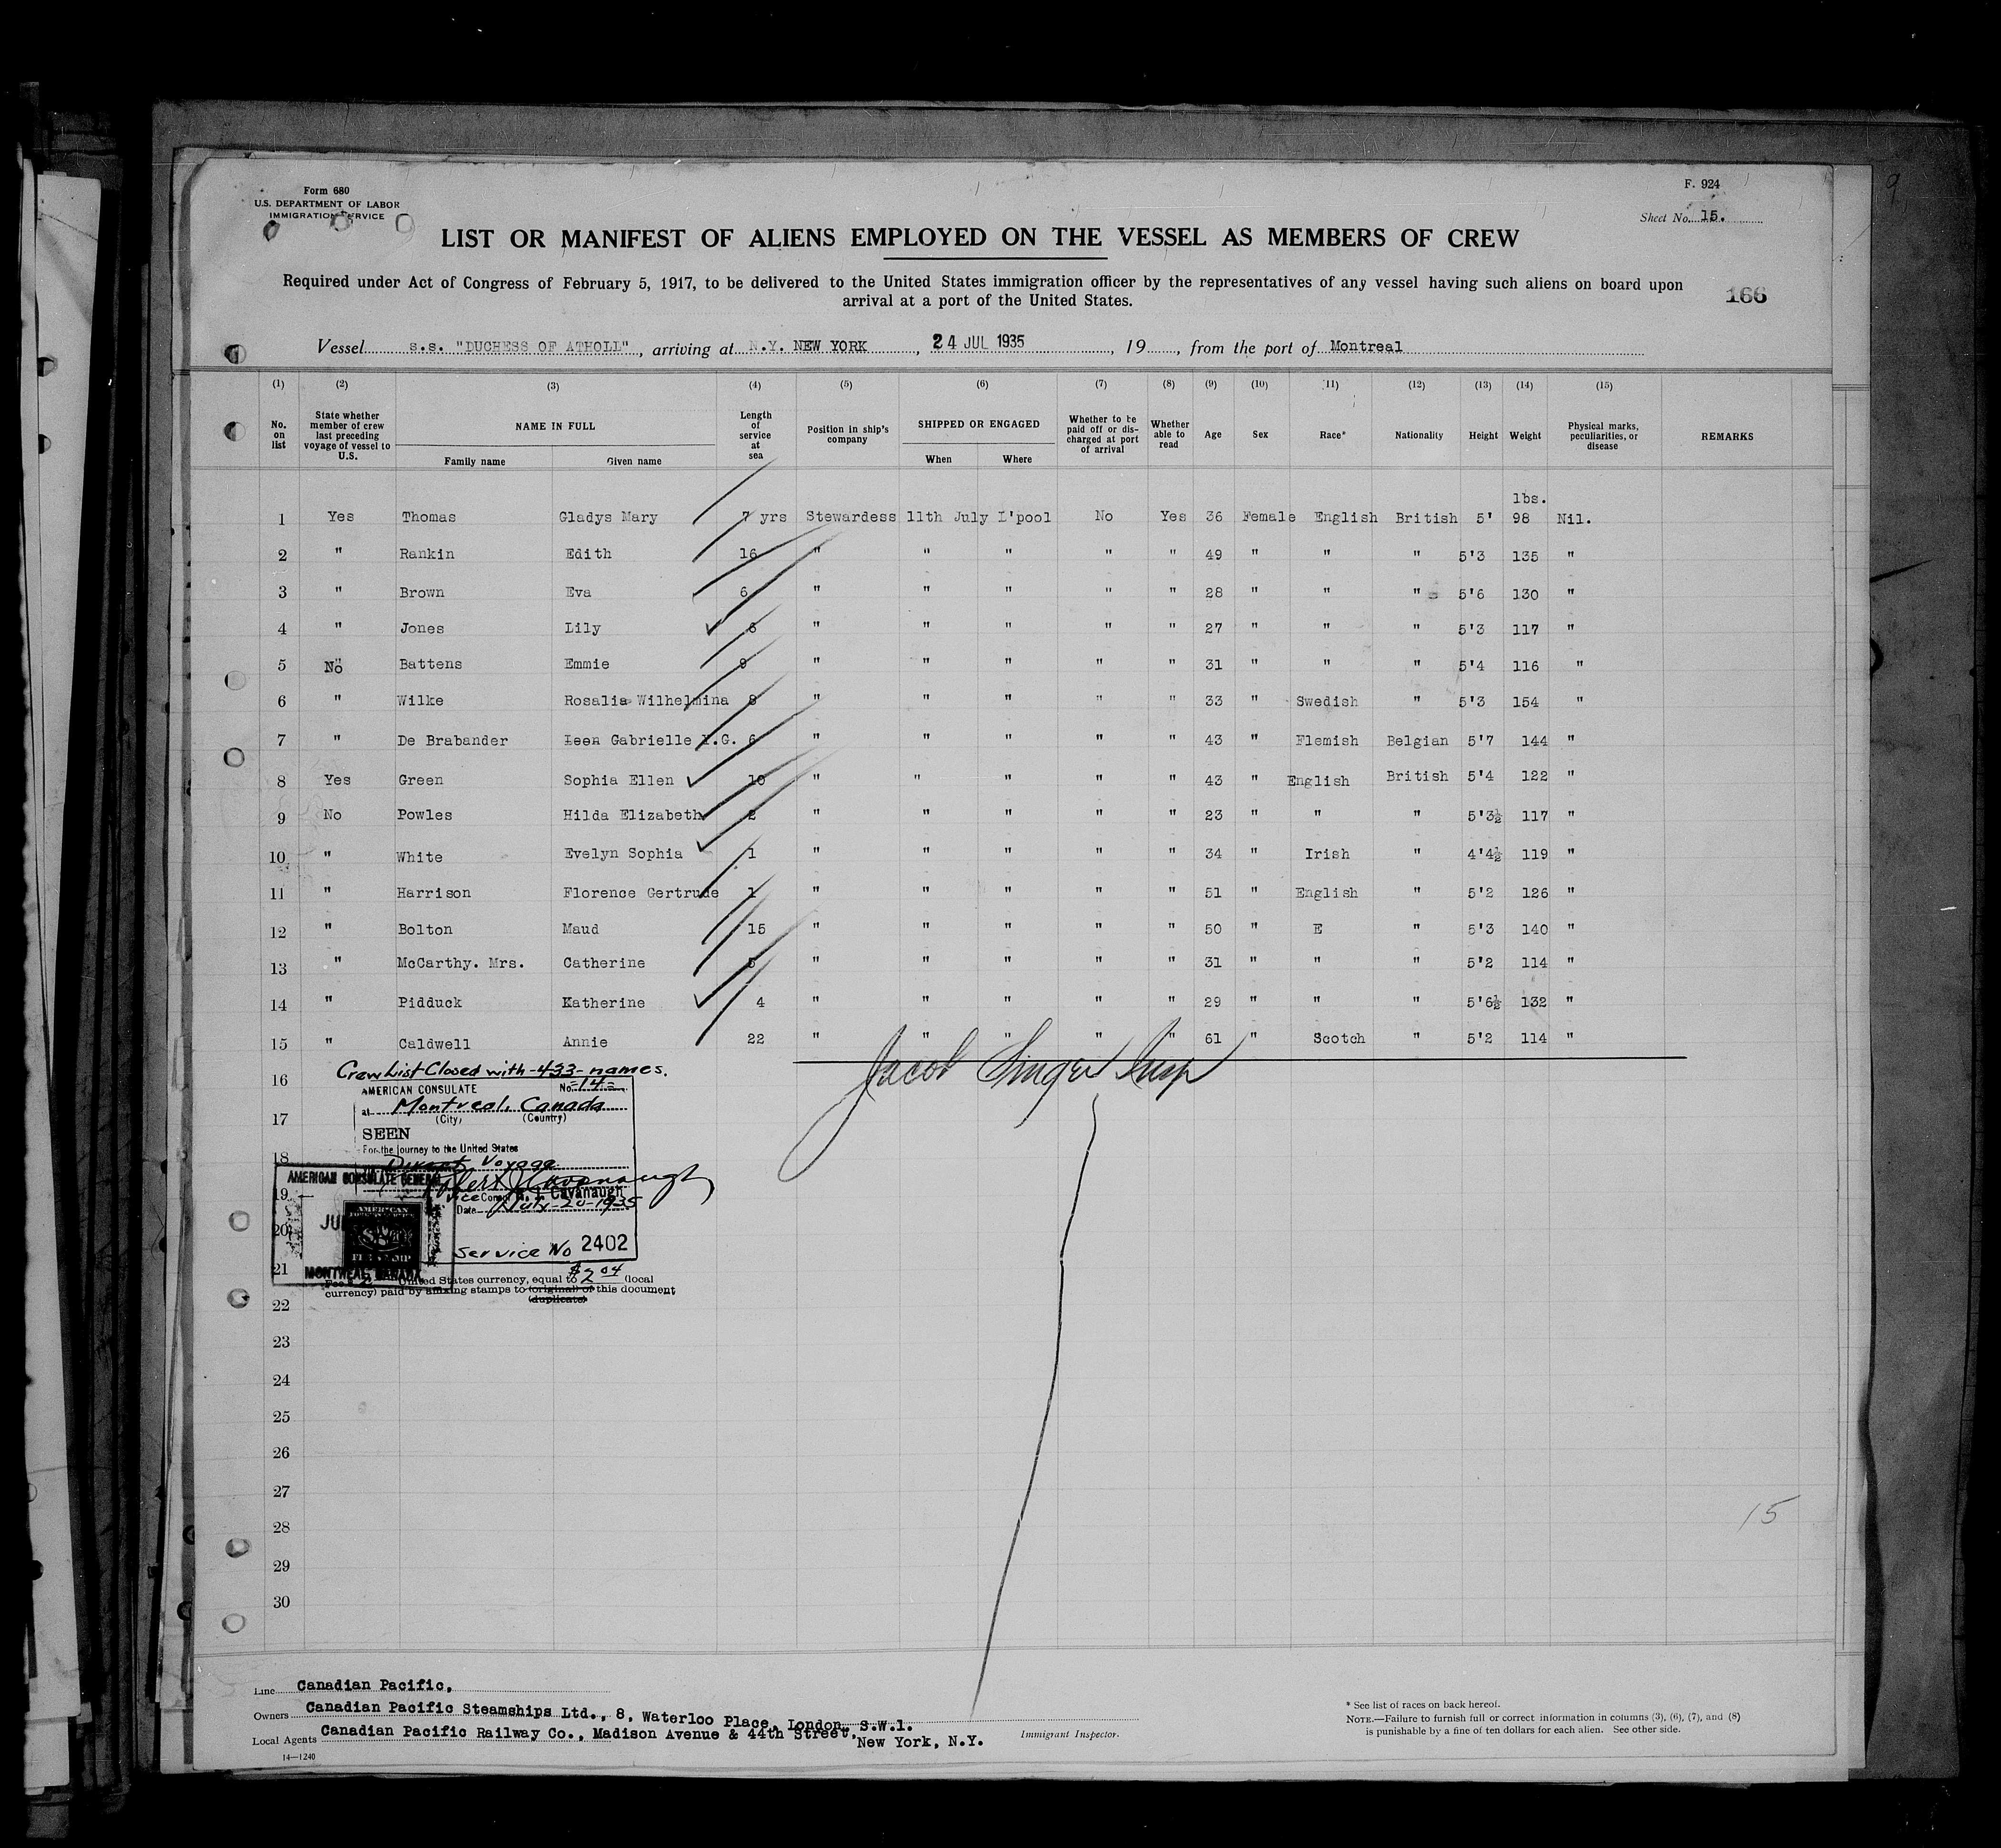 Form 680
U.S. DEPARTMENT OF LABOR
IMMIGRATION SERVICE
F. 924
Sheet No. 15.
LIST OR MANIFEST OF ALIENS EMPLOYED ON THE VESSEL AS MEMBERS OF CREW
Required under Act of Congress of February 5, 1917, to be delivered to the United States immigration officer by the representatives of any vessel having such aliens on board upon
arrival at a port of the United States.
166
Vessel s.s. "DUCHESS OF ATHOLL", arriving at N.Y. NEW YORK, 24 JUL 1935, 19, from the port of Montreal
(1) (2) (3) (4) (5) (6) (7) (8) (9) (10) (11) (12) (13) (14) (15)
No. on list | State whether member of crew last preceding voyage of vessel to U.S. | NAME IN FULL Family name Given name | Length of service at sea | Position in ship's company | SHIPPED OR ENGAGED When Where | Whether to be paid off or discharged at port of arrival | Whether able to read | Age | Sex | Race* | Nationality | Height | Weight | Physical marks, peculiarities, or disease | REMARKS
lbs.
1 Yes Thomas Gladys Mary 7 yrs Stewardess 11th July L'pool No Yes 36 Female English British 5' 98 Nil.
2 " Rankin Edith 16 " " " " " 49 " " " 5'3 135 "
3 " Brown Eva 6 " " " " " 28 " " " 5'6 130 "
4 " Jones Lily 6 " " " " " 27 " " " 5'3 117 "
5 No Battens Emmie 9 " " " " " 31 " " " 5'4 116 "
6 " Wilke Rosalia Wilhelmina 8 " " " " " 33 " Swedish " 5'3 154 "
7 " De Brabander Leen Gabrielle Y.G. 6 " " " " " 43 " Flemish Belgian 5'7 144 "
8 Yes Green Sophia Ellen 10 " " " " " 43 " English British 5'4 122 "
9 No Powles Hilda Elizabeth 2 " " " " " 23 " " " 5'3½ 117 "
10 " White Evelyn Sophia 1 " " " " " 34 " Irish " 4'4½ 119 "
11 " Harrison Florence Gertrude 1 " " " " " 51 " English " 5'2 126 "
12 " Bolton Maud 15 " " " " " 50 " E " 5'3 140 "
13 " McCarthy. Mrs. Catherine 5 " " " " " 31 " " " 5'2 114 "
14 " Pidduck Katherine 4 " " " " " 29 " " " 5'6½ 132 "
15 " Caldwell Annie 22 " " " " " 61 " Scotch " 5'2 114 "
Crew List Closed with -433- names.
Jacob Singer Insp
16
AMERICAN CONSULATE No. =14=
at Montreal, Canada
(City) (Country)
17
SEEN
For the journey to the United States
18
Direct Voyage
AMERICAN CONSULATE GENERAL
Vice Consul Cavanaugh
19
Date July-20-1935
20
Service No 2402
21
MONTREAL, CANADA
Fee $2 United States currency, equal to $2.04 (local
currency) paid by affixing stamps to (original) of this document
(duplicate)
22
23
24
25
26
27
28
15
29
30
Line Canadian Pacific,
Owners Canadian Pacific Steamships Ltd., 8, Waterloo Place, London, S.W.1.
Local Agents Canadian Pacific Railway Co., Madison Avenue & 44th Street, New York, N.Y.
Immigrant Inspector.
14—1240
* See list of races on back hereof.
NOTE.—Failure to furnish full or correct information in columns (3), (6), (7), and (8)
is punishable by a fine of ten dollars for each alien. See other side.